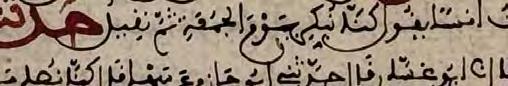 انسا يقول كنا نبكر يوم الجمعة ثم نقيل حدثنا
ابو غسان قال حدثني ابو حازم عن سهل قال كنا نصلي